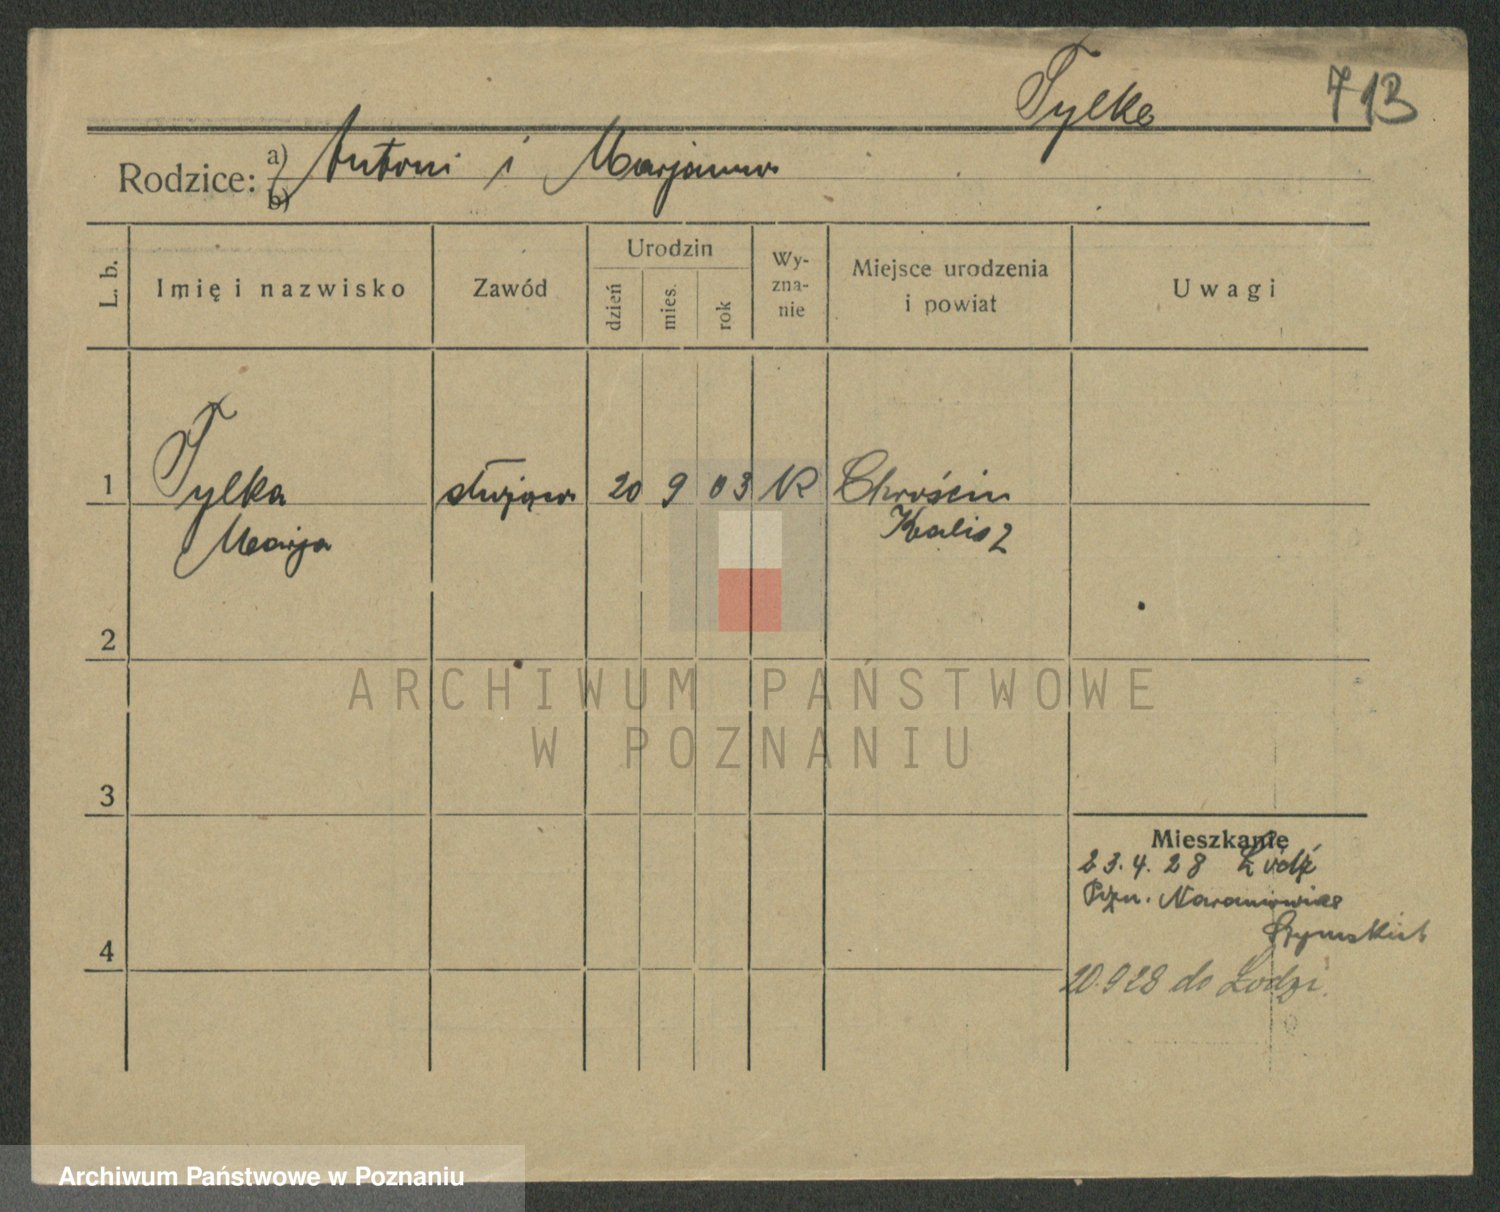 Tylka 713
Rodzice: a) Antoni i Marjanna
b)
L. b. Imię i nazwisko Zawód Urodzin dzień mies. rok Wy-zna-nie Miejsce urodzenia i powiat Uwagi
1 Tylka służąca 20 9 03 K Chrościn
Marja Kalisz
2
ARCHIWUM PAŃSTWOWE
W POZNANIU
3
Mieszkanie
23.4.28 Łódź
Naramowice
4
20.9 28 do Łodzi.
Archiwum Państwowe w Poznaniu